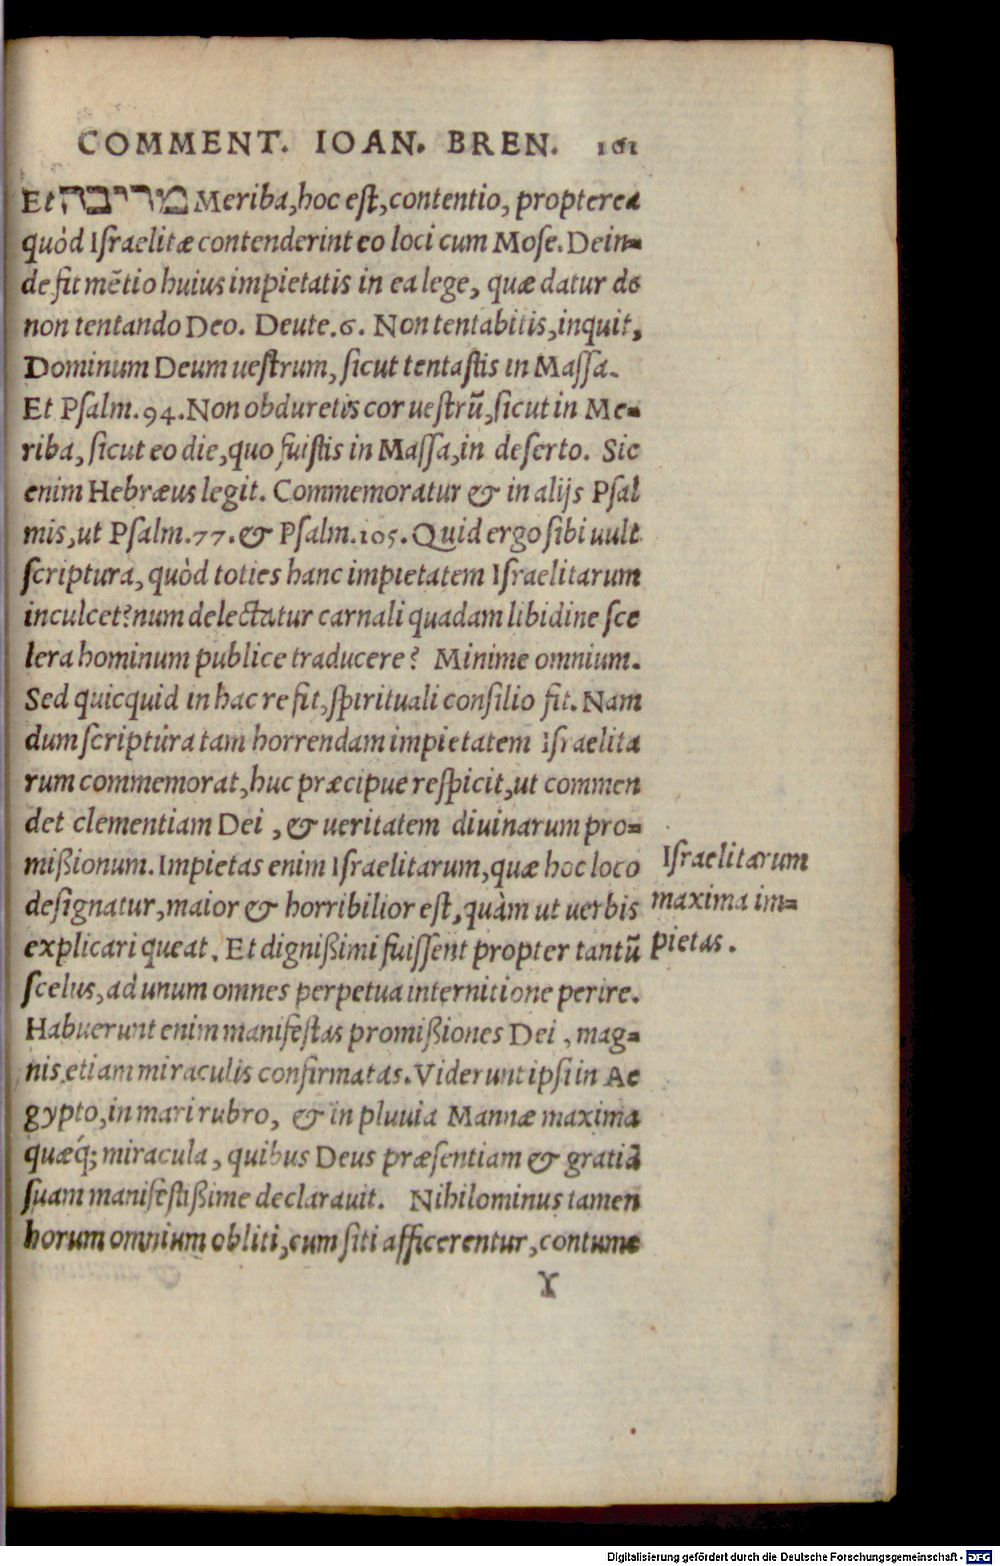 COMMENT. IOAN. BREN. 161
Et מריבה Meriba, hoc est, contentio, propterea
quòd Israelitæ contenderint eo loci cum Mose. Dein-
de fit mẽtio huius impietatis in ea lege, quæ datur de
non tentando Deo. Deute. 6. Non tentabitis, inquit,
Dominum Deum uestrum, sicut tentastis in Massa.
Et Psalm. 94. Non obduretis cor uestrũ, sicut in Me-
riba, sicut eo die, quo fuistis in Massa, in deserto. Sic
enim Hebræus legit. Commemoratur & in alijs Psal
mis, ut Psalm. 77. & Psalm. 105. Quid ergo sibi uult
scriptura, quòd toties hanc impietatem Israelitarum
inculcet? num delectatur carnali quadam libidine sce
lera hominum publice traducere? Minime omnium.
Sed quicquid in hac re fit, spirituali consilio fit. Nam
dum scriptura tam horrendam impietatem Israelita
rum commemorat, huc præcipue respicit, ut commen
det clementiam Dei, & ueritatem diuinarum pro-
mißionum. Impietas enim Israelitarum, quæ hoc loco
designatur, maior & horribilior est, quàm ut uerbis
explicari queat. Et dignißimi fuissent propter tantũ
scelus, ad unum omnes perpetua internitione perire.
Habuerunt enim manifestas promißiones Dei, mag-
nis etiam miraculis confirmatas. Viderunt ipsi in Ae
gypto, in mari rubro, & in pluuia Mannæ maxima
quæq́; miracula, quibus Deus præsentiam & gratiã
suam manifestißime declarauit. Nihilominus tamen
horum omnium obliti, cum siti afficerentur, contume
Y
Israelitarum
maxima im-
pietas.
Digitalisierung gefördert durch die Deutsche Forschungsgemeinschaft - DFG